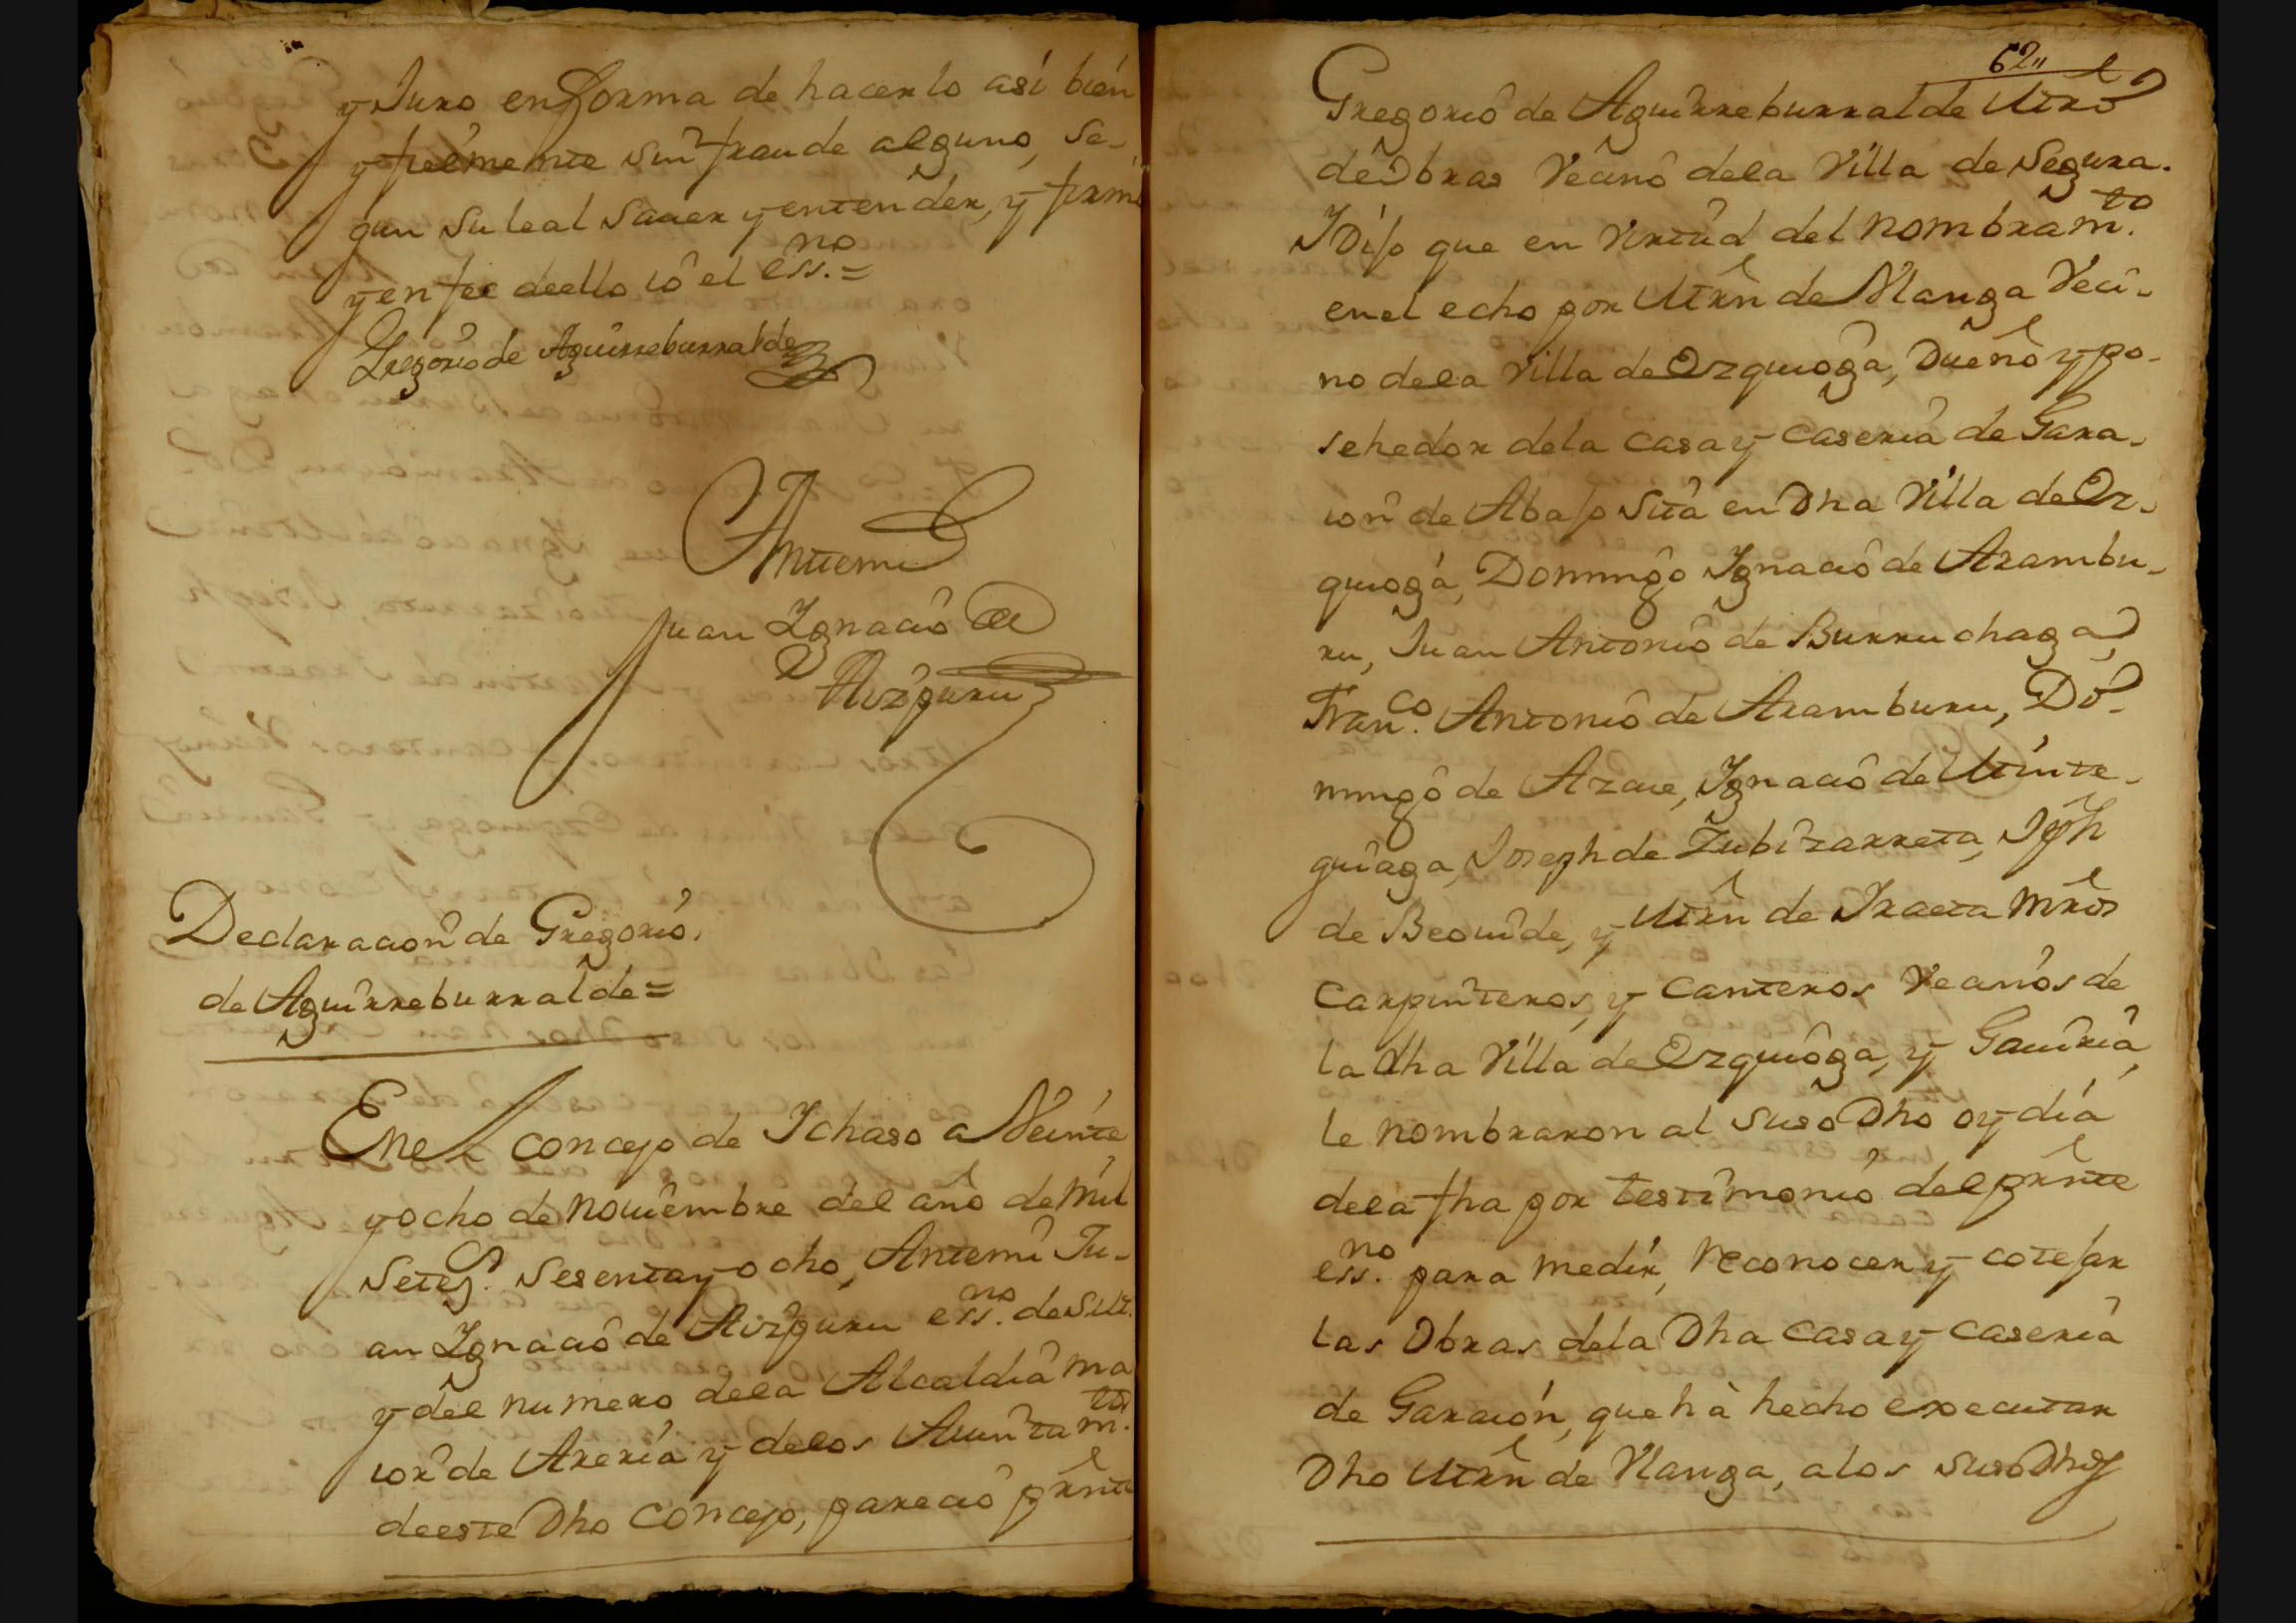 y Juro en forma de hacerlo así bien
y fielmente sin fraude alguno, se-
gun su leal sauer y entender, y firmó
y en fee deello io el ess.no =
Gregorio de Aguirreburralde
Antemi
Juan Ignacio de
Aizpuru
Declaracion de Gregorio,
de Aguirreburralde =
En el concejo de Ichaso a Veinte
y ocho de nouiembre del año de mil
Setez.s Sesenta y ocho, Antemi Ju-
an Ignacio de Aizpuru ess.no de Su M.
y del numero dela Alcaldia ma
ior de Areria y delos Aiuntam.tos
deeste Dho concejo, parecio prnte
62
Gregorio de Aguirreburralde Mro
de Obras Vecino dela Villa de Segura.
I Dijo que en Virtud del nombram.to
en el echo por Mrn de Alanga Veci-
no dela Villa de Ozquioga, Dueño y po-
sehedor dela casa y caseria de Gara-
ion de Abajo Sita en Dha Villa de Oz-
quioga, Domingo Ignacio de Arambu-
ru, Juan Antonio de Burruchaga,
Fran.co Antonio de Aramburu, Do-
mingo de Azcue, Ignacio de Minte-
guiaga, Joseph de Zubizarreta, Jph
de Beouide, y Mrn de Iraeta Mros
Carpinteros, y Canteros Vecinos de
la dha Villa de Ozquioga, y Gauiria,
le nombraron al suso Dho oy dia
dela fha por testimonio del prnte
ess.no para medir, reconocer y cotejar
las Obras dela Dha casa y caseria
de Garaion, que hà hecho executar
Dho Mrn de Alanga, a los suso Dhos